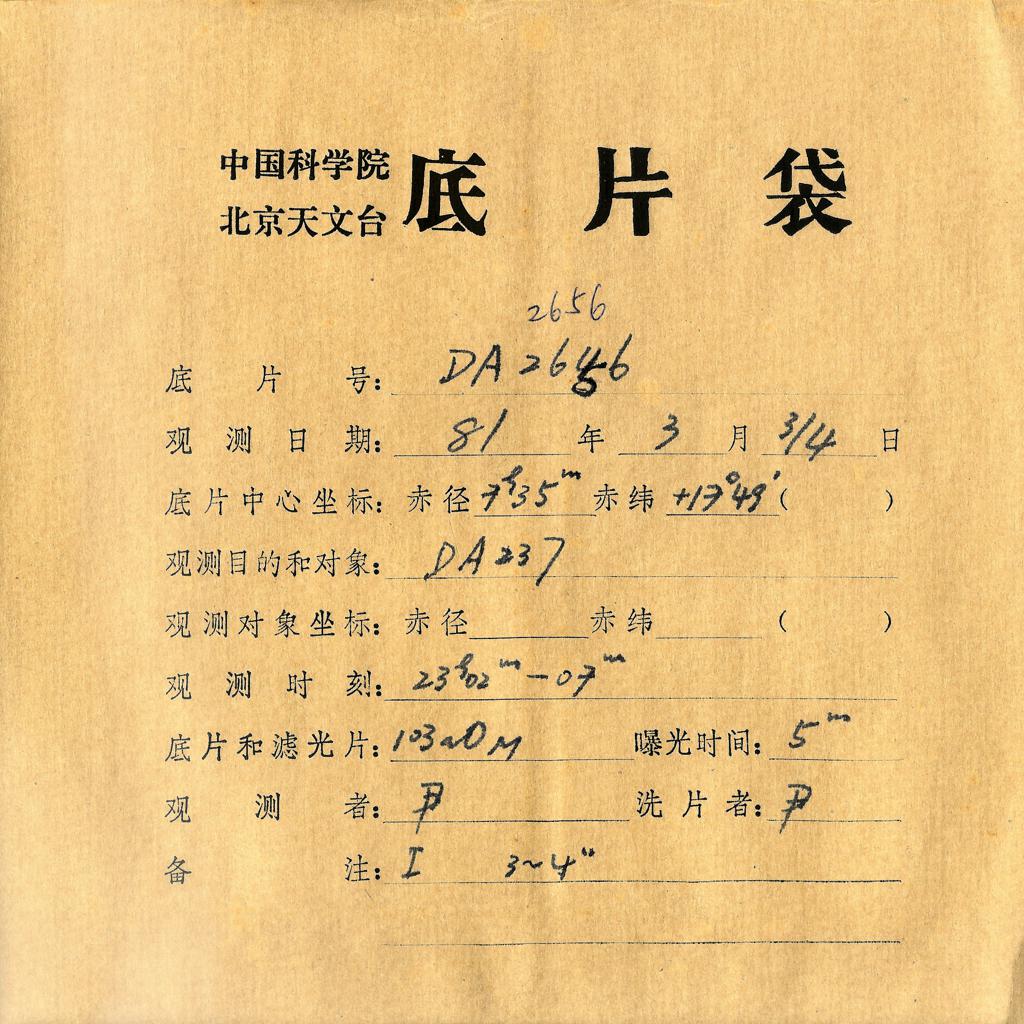 中国科学院
北京天文台
底片袋
2656
底片号：DA 2656
观测日期：81年3月3/4日
底片中心坐标：赤径7ʰ35ᵐ赤纬+17°49′（ ）
观测目的和对象：DA 237
观测对象坐标：赤径 赤纬 （ ）
观测时刻：23ʰ02ᵐ—07ᵐ
底片和滤光片：103aO M 曝光时间：5ᵐ
观测者：尹 洗片者：尹
备注：I 3~4"